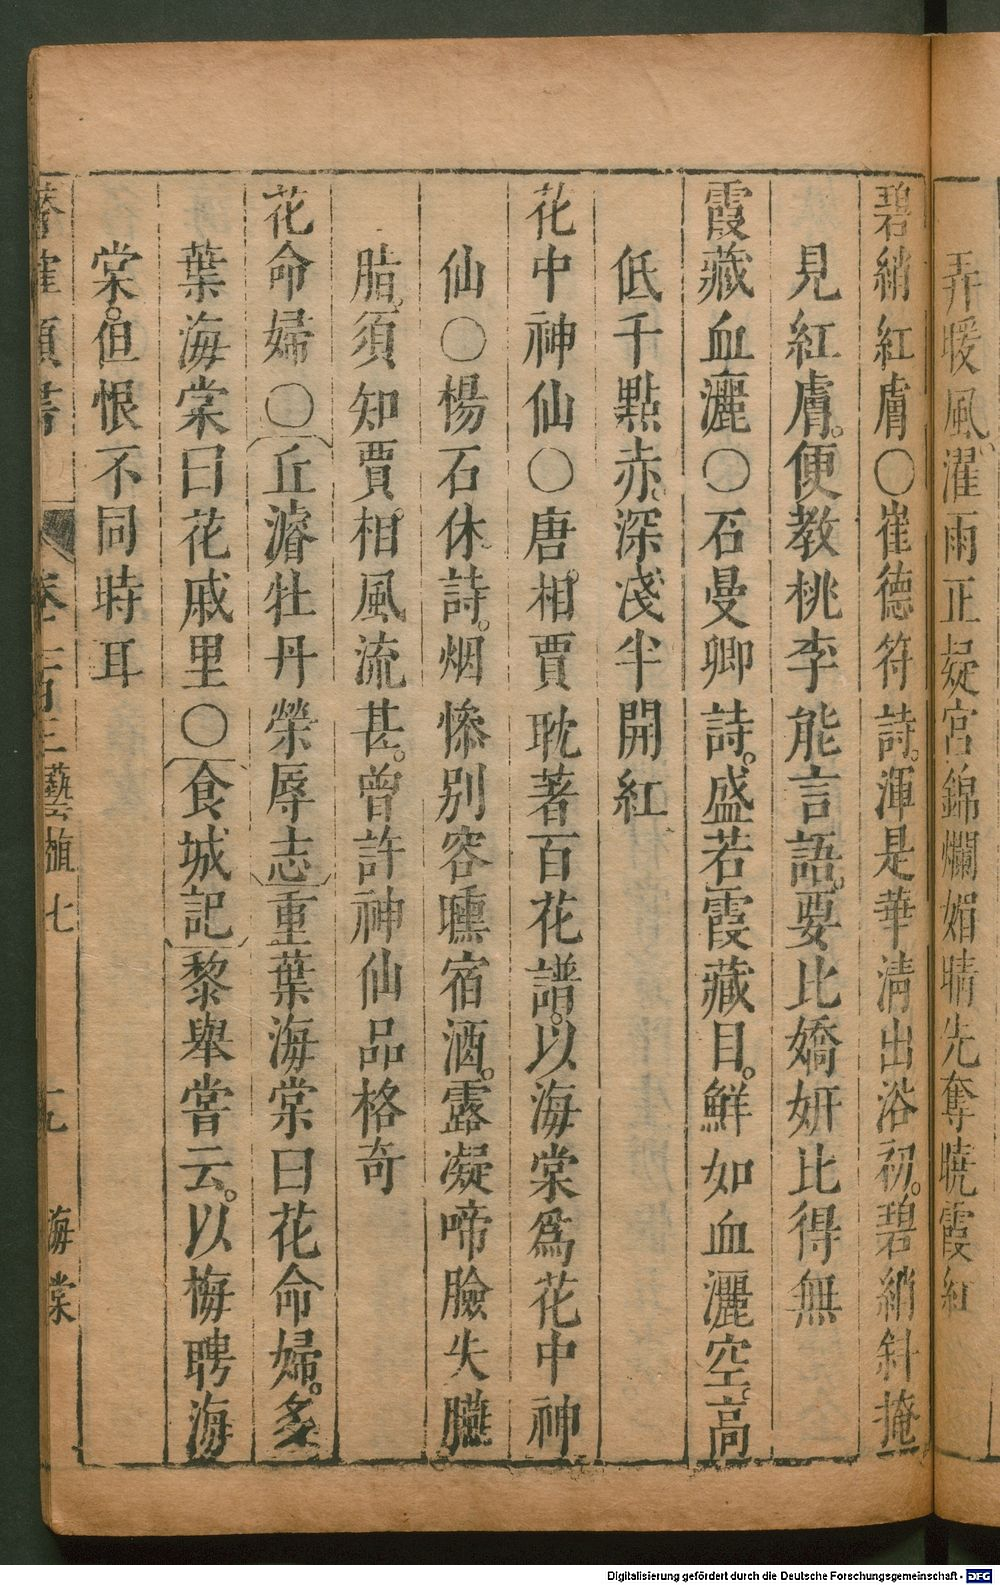 弄暖風濯雨正疑宮錦爛媚晴先奪曉霞紅
碧綃紅膚〇崔德符詩。渾是華清出浴初。碧綃斜掩
見紅膚。便教桃李能言語。要比嬌妍比得無
霞藏血灑〇石曼卿詩。盛若霞藏目。鮮如血灑空。高
低千點赤。深淺半開紅
花中神仙〇唐相賈耽著百花譜。以海棠爲花中神
仙〇楊石休詩。烟慘別容曛宿酒。露凝啼臉失臙
脂。須知賈相風流甚。曾許神仙品格奇
花命婦〇丘濬牡丹榮辱志重葉海棠曰花命婦。多
葉海棠曰花戚里〇食城記黎舉嘗云。以梅聘海
棠。但恨不同時耳
類書 卷 藝植七 九 海棠
Digitalisierung gefördert durch die Deutsche Forschungsgemeinschaft - DFG